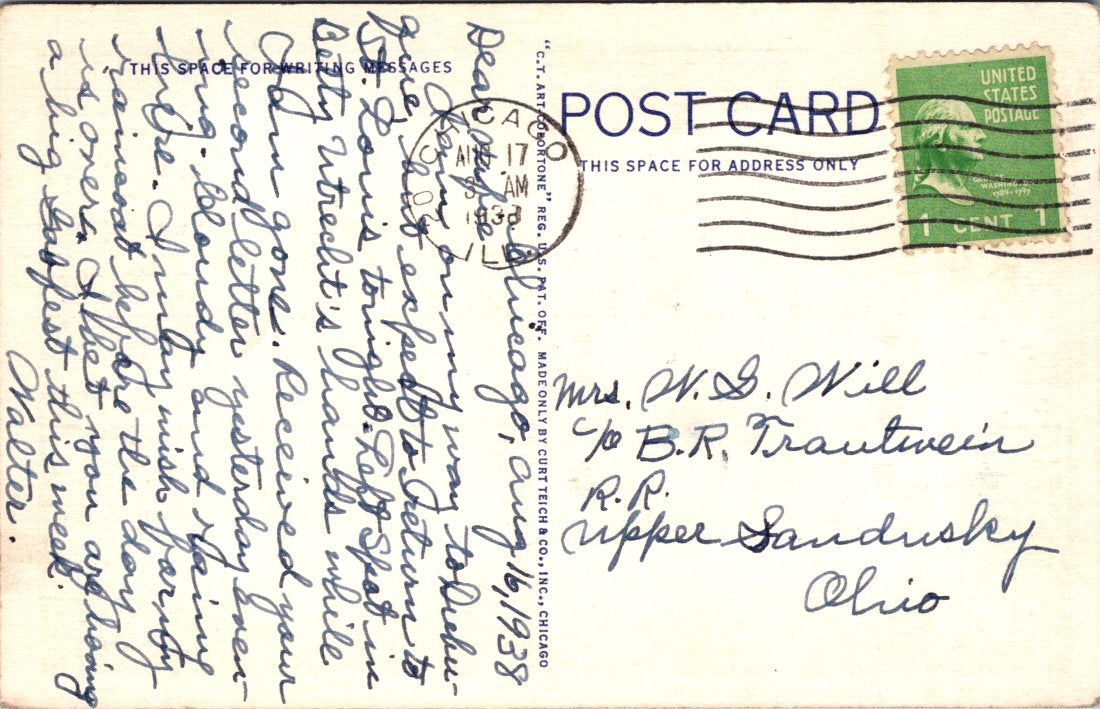 THIS SPACE FOR WRITING MESSAGES
Chicago, Aug 16, 1938
Dear
Am on my way to Dubu-
que, but expect to return to
St. Louis tonight. Left Spot in
Betty Utrecht's hands while
I am gone. Received your
second letter yesterday even-
ing. Cloudy and raining
here. I may wish for my
raincoat before the day
is over. I bet you are having
a big gabfest this week.
Walter.
"C.T. ART-COLORTONE" REG. U.S. PAT. OFF. MADE ONLY BY CURT TEICH & CO., INC., CHICAGO
POST CARD
THIS SPACE FOR ADDRESS ONLY
CHICAGO
AUG 17
AM
1938
ILL.
UNITED
STATES
POSTAGE
WASHINGTON
1789-1797
1 CENT 1
Mrs. W. G. Will
c/o B. R. Trautwein
R. R.
Upper Sandusky
Ohio